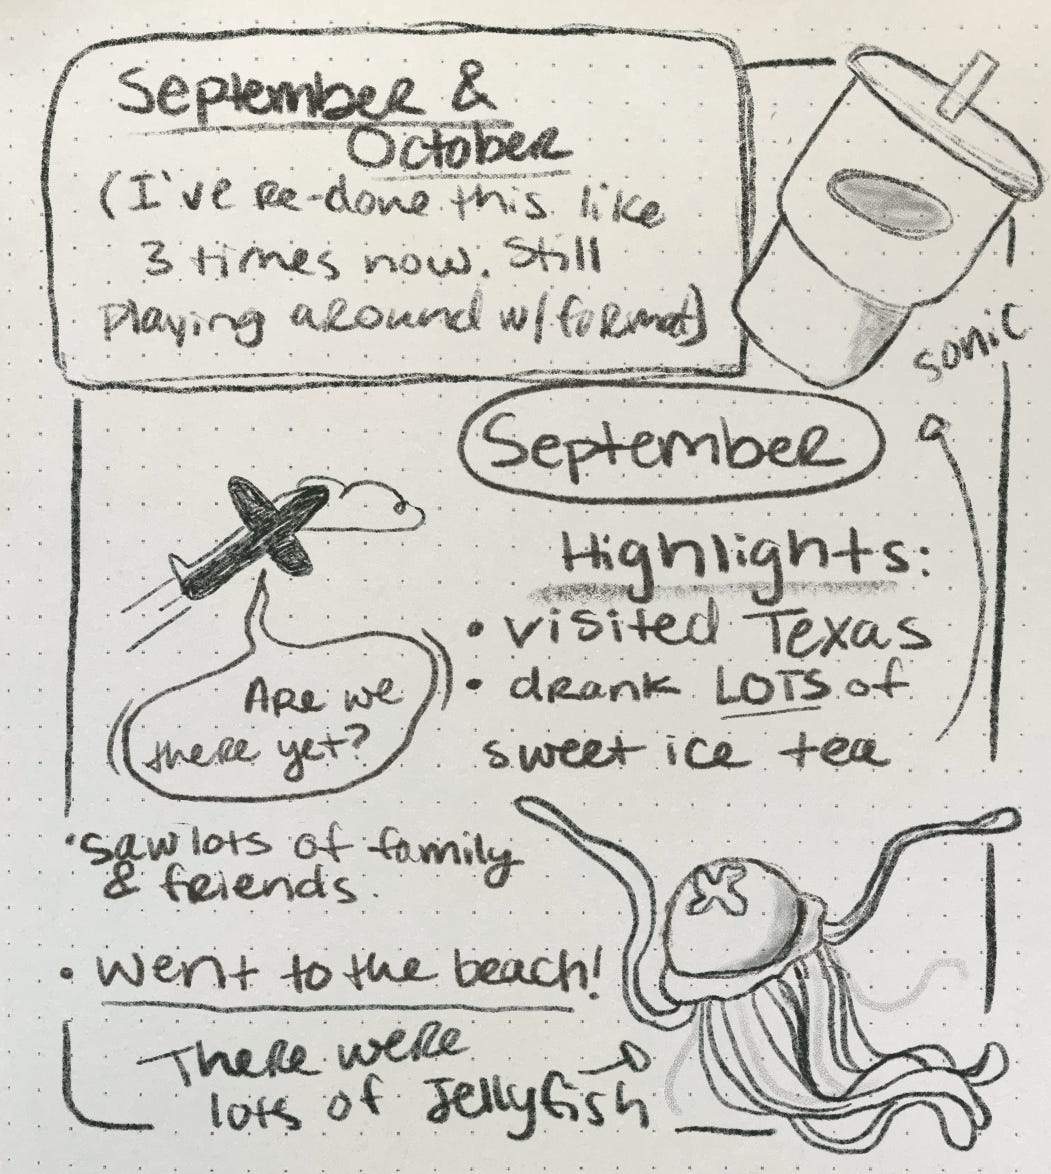 September &
October
(I've re-done this like
3 times now. Still
playing around w/format)
sonic
September
Highlights:
• visited Texas
• drank LOTS of
sweet ice tea
Are we
there yet?
• saw lots of family
& friends.
• went to the beach!
There were
lots of Jellyfish